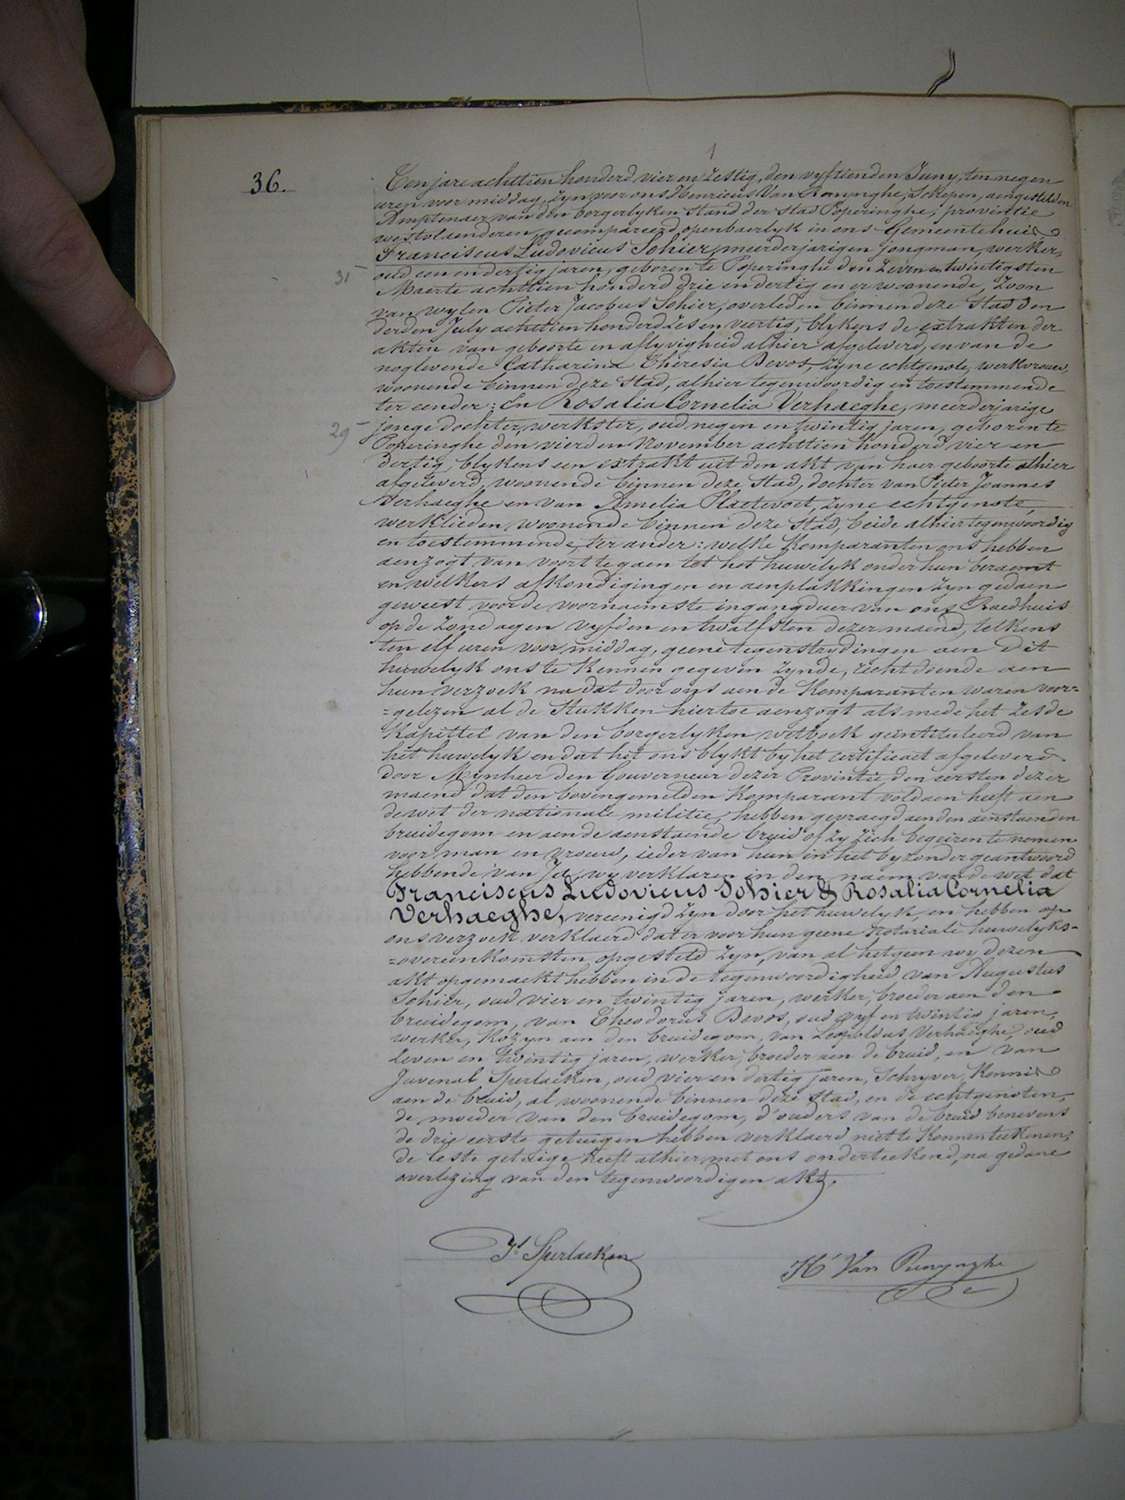 36.
Ten jare achttien honderd vier en zestig, den vyftienden Juny, ten negen
uren voor middag, zyn voor ons Henricus Van Renynghe, Schepen, aengestelden
Amptenaer van den borgerlyken stand der stad Poperinghe, provintie
westvlaenderen, gecompareerd openbaerlyk in ons Gemeentehuis
Franciscus Ludovicus Sohier, meerderjarigen jongman, werker,
31
oud een en dertig jaren, geboren te Poperinghe den zeven en twintigsten
Maerte achttien honderd drie en dertig en er woonende, zoon
van wylen Pieter Jacobus Sohier, overleden binnen deze stad den
derden July achttien honderd zes en veertig, blykens de extrakten der
akten van geboorte en aflyvigheid alhier afgeleverd, en van de
noglevende Catharina Theresia Devos, zyne echtgenote, werkvrouw,
woonende binnen deze Stad, alhier tegenwoordig en toestemmende
ter eender; En Rosalia Cornelia Verhaeghe, meerderjarige
29
jonge dochter, werkster, oud negen en twintig jaren, geboren te
Poperinghe den vierden November achttien honderd vier en
dertig, blykens een extrakt uit den akt van haer geboorte alhier
afgeleverd, woonende binnen deze Stad, dochter van Pieter Joannes
Verhaeghe en van Amelia Plaetevoet, zyne echtgenote,
werklieden, woonende binnen deze Stad, beide alhier tegenwoordig
en toestemmende, ter ander: welke Komparanten ons hebben
aenzogt van voort te gaen tot het huwelyk onder hun beraemt
en welkers afkondigingen en aenplakkingen zyn gedaen
geweest voor de voornaemste ingangdeur van ons Raedhuis
op de zondagen vyfden en twalfsten dezer maend, telkens
ten elf uren voor middag, geene tegenstrydingen aen dit
huwelyk ons te kennen gegeven zynde, recht doende aen
hun verzoek na dat door ons aen de Komparanten waren voor=
=gelezen al de Stukken hiertoe aenzogt als mede het zesde
Kapittel van den borgerlyken wetboek geïntituleerd van
het huwelyk en dat het ons blykt by het certificaet afgeleverd
door Mynheer den Gouverneur dezer Provintie, den eersten dezer
maend dat den bovengemelden Komparant voldaen heeft aen
de wet der nationale militie, hebben gevraegd aen den aenstaenden
bruidegom en aen de aenstaende bruid of zy zich begeiren te nemen
voor man en vrouw, ieder van hun in het byzonder geantwoord
hebbende van Ja, wy verklaren in den naem van de wet dat
Franciscus Ludovicus Sohier & Rosalia Cornelia
Verhaeghe, vereenigd zyn door het huwelyk, en hebben op
ons verzoek verklaerd dat er voor hun geene Notariale huwelyks=
=overeenkomsten opgesteld zyn, van al hetgene wy dezen
akt opgemaekt hebben in de tegenwoordigheid van Augustus
Sohier, oud vier en twintig jaren, werker, broeder aen den
bruidegom, van Theodorus Devos, oud vyf en twintig jaren,
werker, Kozyn aen den bruidegom, van Leopoldus Verhaeghe, oud
zeven en twintig jaren, werker, broeder aen de bruid, en van
Juvenal Sperlaeken, oud vier en dertig jaren, Schryver, Kennis
aen de bruid, al woonende binnen deze Stad, en de echtgenoten,
de moeder van den bruidegom, d'ouders van de bruid benevens
de drie eerste getuigen hebben verklaerd niet te Konnen teekenen;
de leste getuige heeft alhier, met ons onderteekend, na gedane
overlezing van den tegenwoordigen akt.
Jl Sperlaeken
Hi Van Renynghe